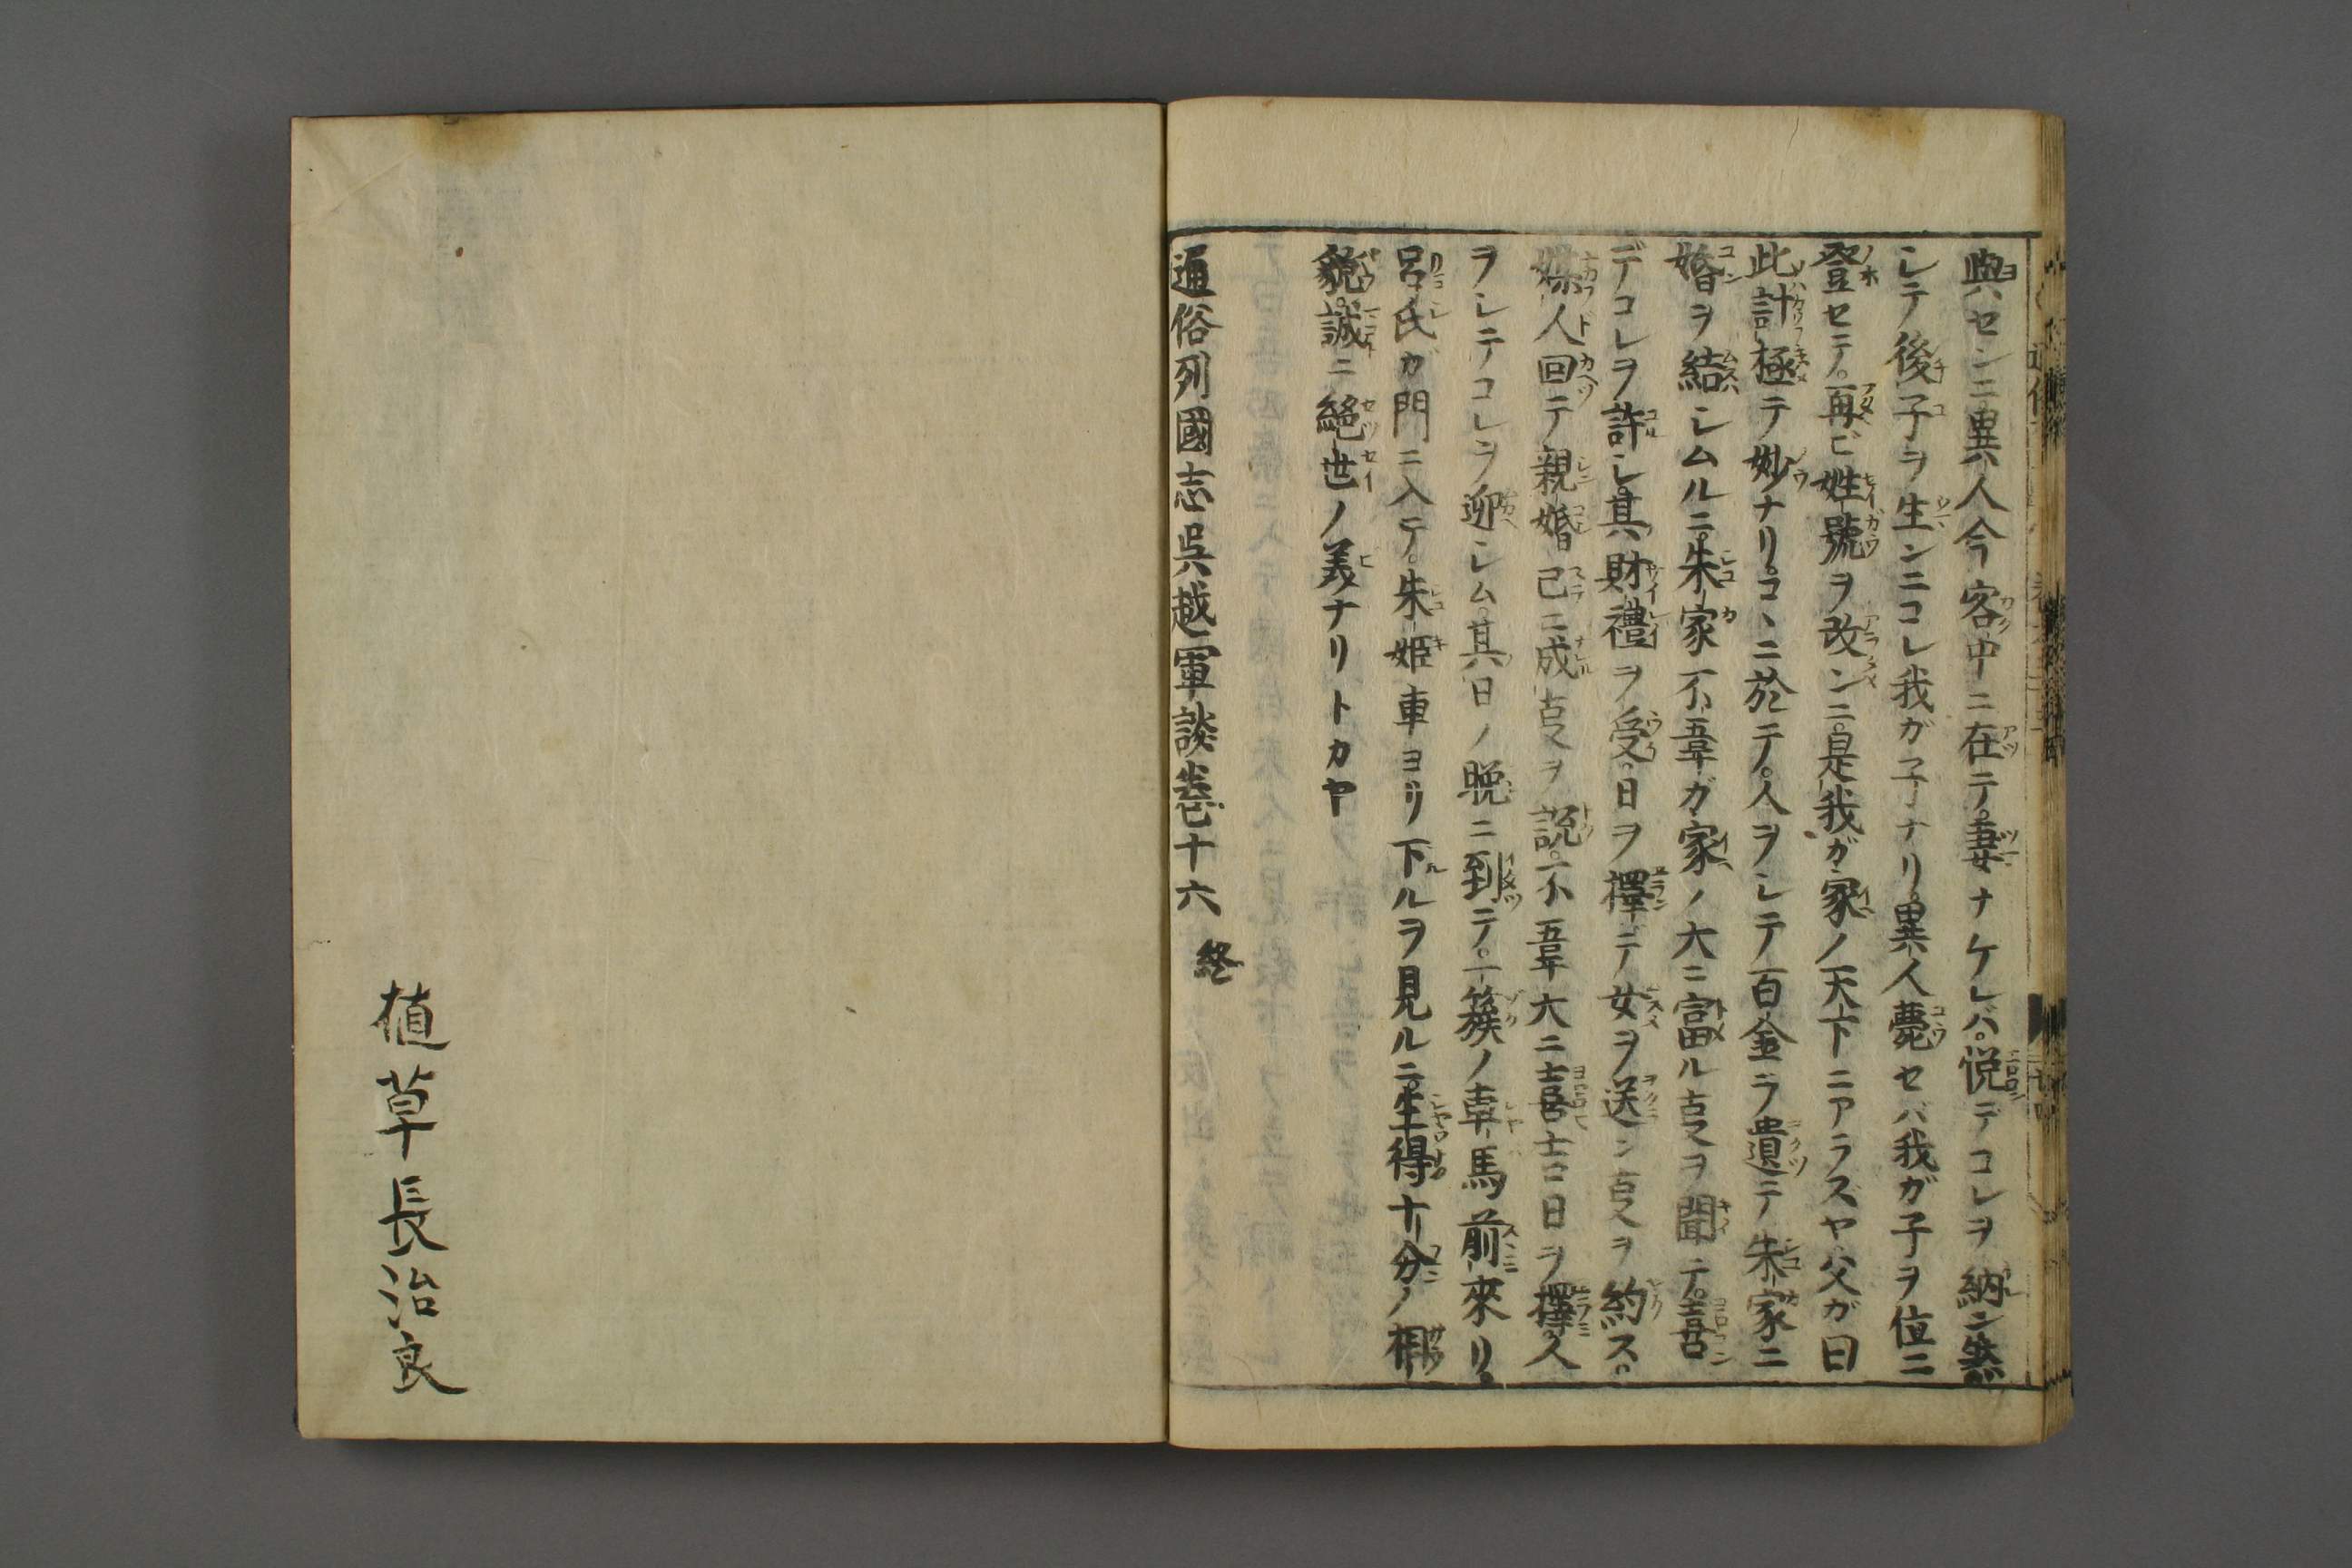 與セシニ異人今客中ニ在テ。妻ナケレバ。悦デコレヲ納ン然
シテ後子ヲ生ンニコレ我ガ子ナリ。異人薨セバ我ガ子ヲ位ニ
登セテ。再ビ姓號ヲ改ンニ。是我ガ家ノ天下ニアラズヤ。父ガ曰
此計極テ妙ナリ。コヽニ於テ。人ヲシテ百金ヲ遺テ朱家ニ
婚ヲ結シムルニ。朱家不韋ガ家ノ大ニ富ル叓ヲ聞テ。喜
デコレヲ許シ。其財禮ヲ受。日ヲ擇デ女ヲ送ン叓ヲ約ス。
媒人回テ親婚已ニ成叓ヲ説。不韋大ニ喜吉日ヲ擇人
ヲシテコレヲ迎シム。其日ノ晩ニ到テ。一簇ノ車馬前來リ。
呂氏ガ門ニ入テ。朱姫車ヨリ下ルヲ見ルニ。生得十分ノ相
貌。誠ニ絶世ノ美ナリトカヤ
通俗列國志呉越軍談卷十六 終
植草長治良